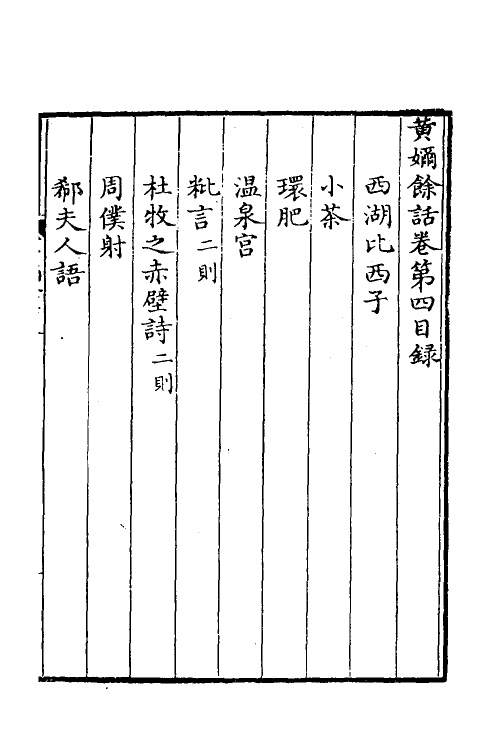 黃嬭餘話卷第四目録
西湖比西子
小茶
環肥
温泉宫
粃言二則
杜牧之赤壁詩二則
周僕射
郗夫人語